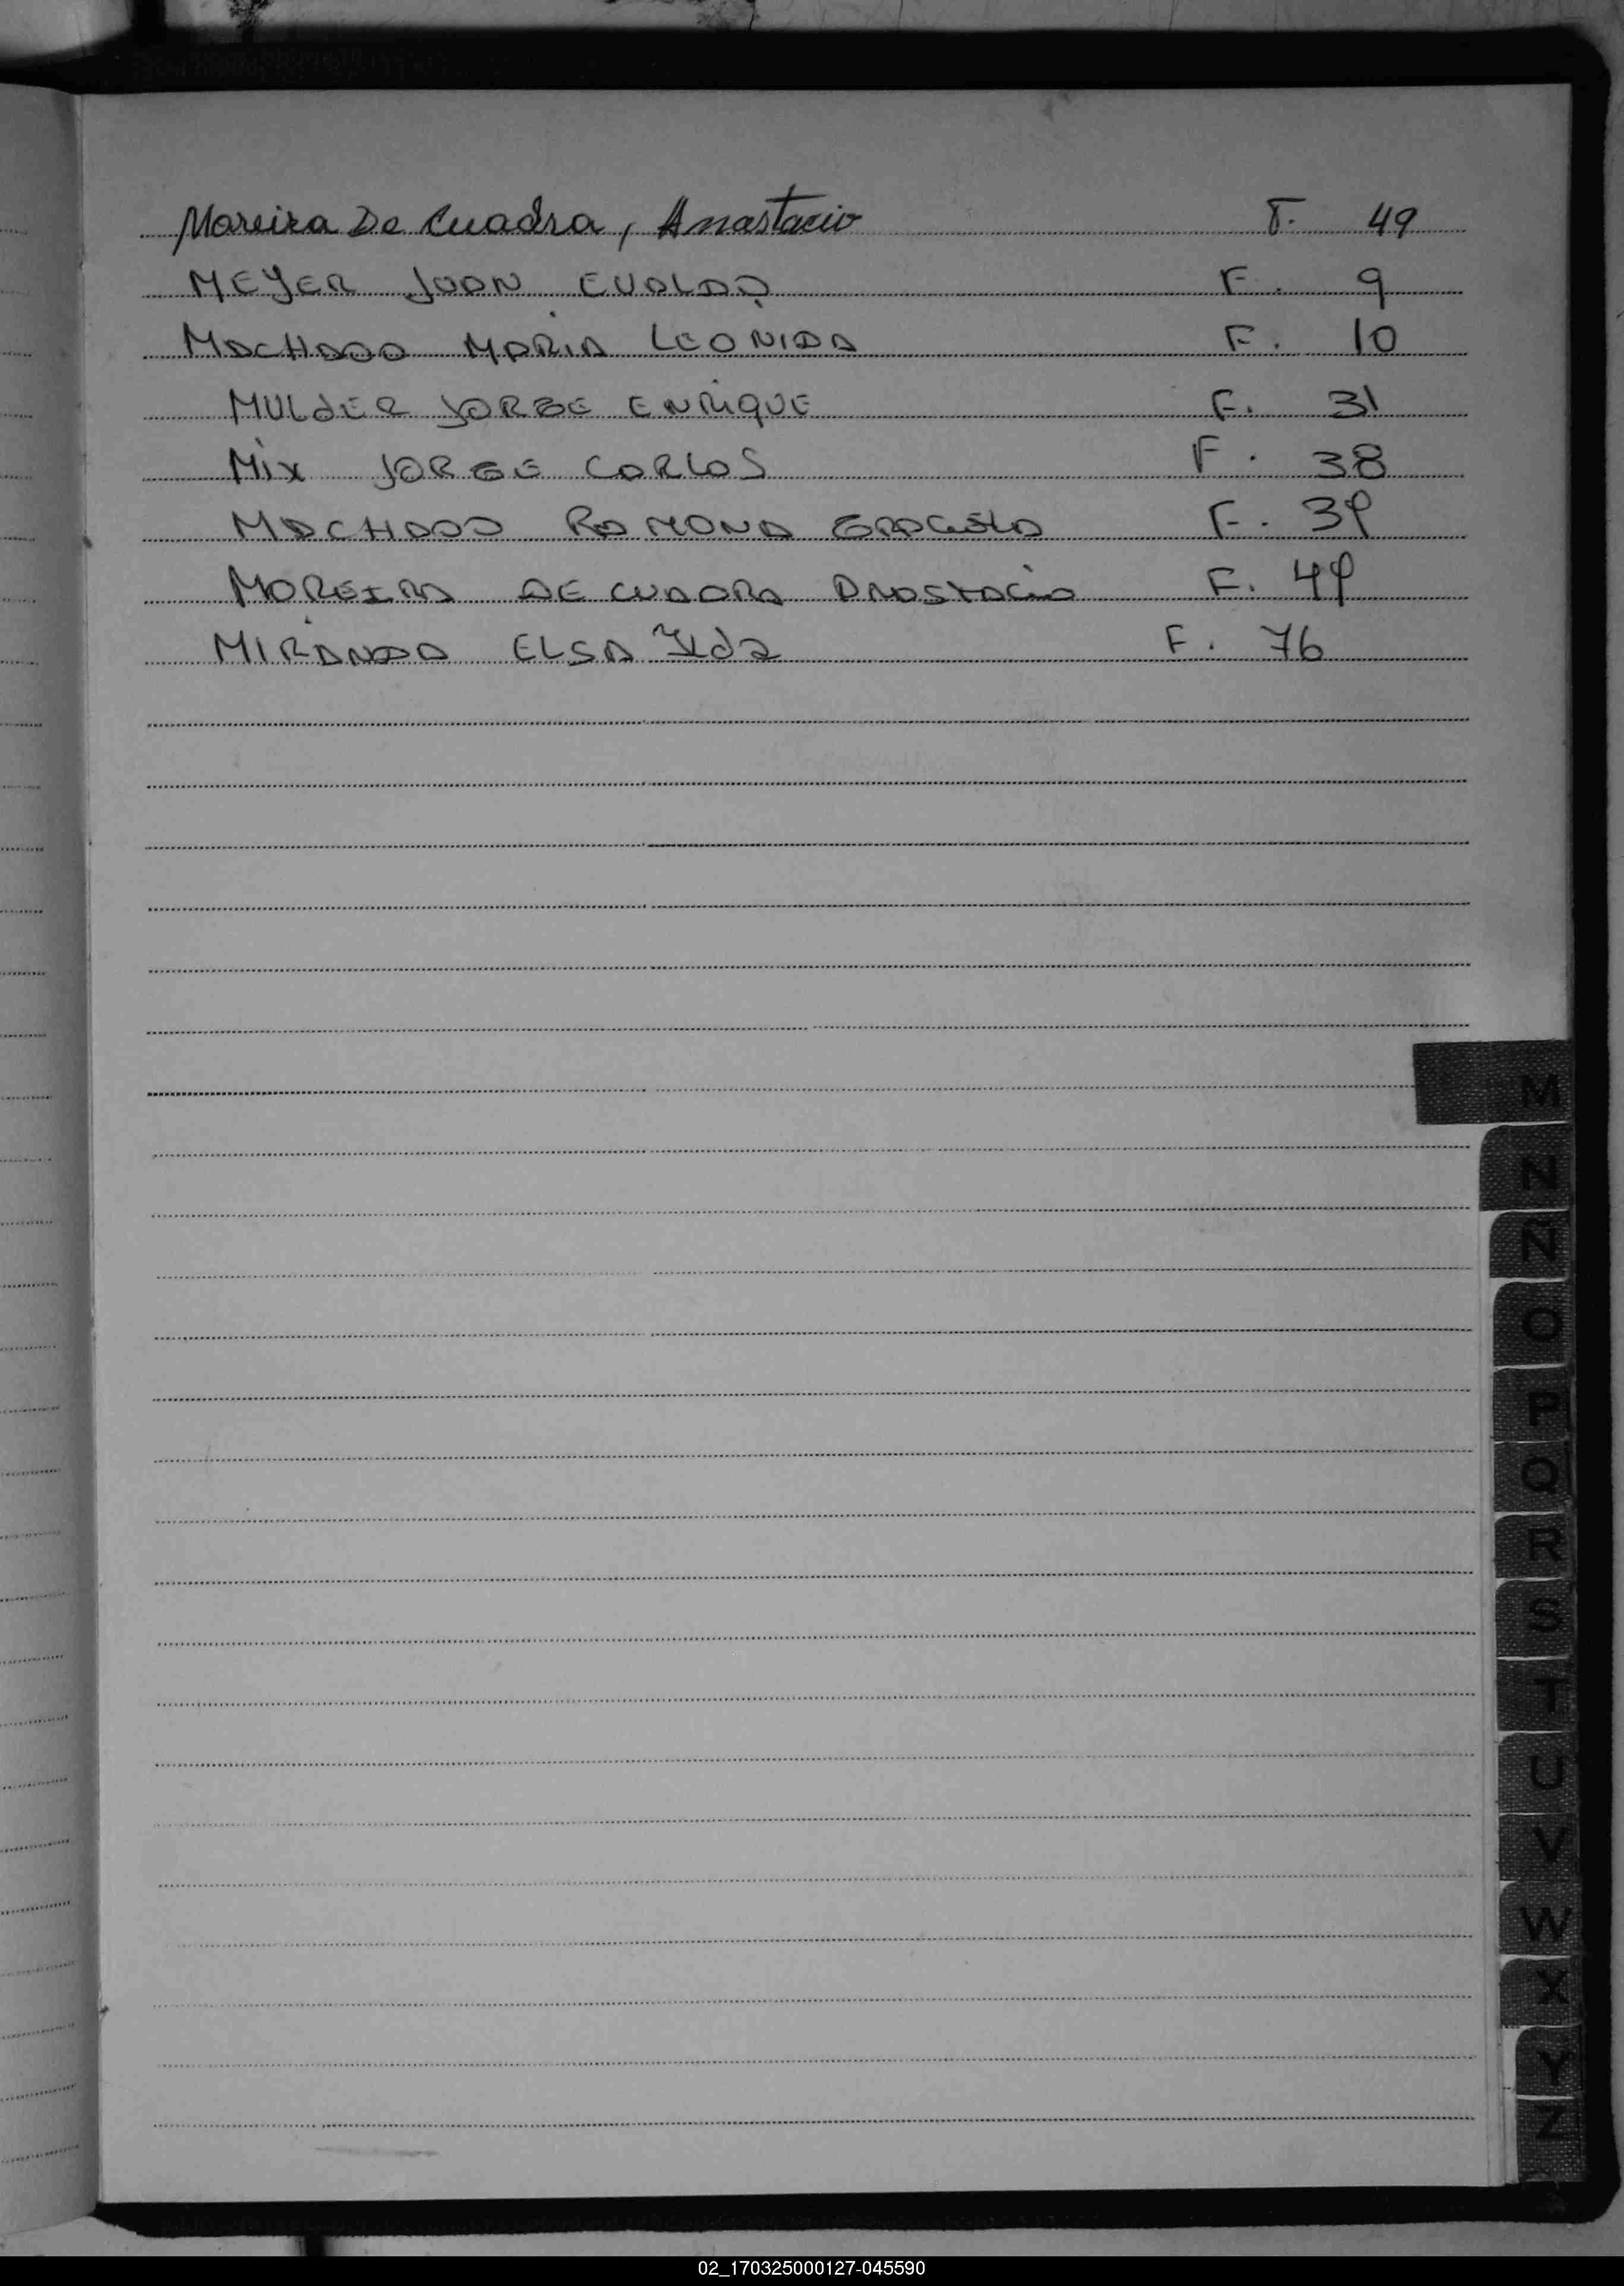 Moreira De Cuadra, Anastacio F. 49
MEYER JUAN EVALDO F. 9
MACHADO MARIA LEONIDA F. 10
MULDER JORGE ENRIQUE F. 31
Mix JORGE CARLOS F. 38
MACHADO RAMONA GRACIELA F. 39
MOREIRA DE CUADRA ANASTACIO F. 49
MIRANDA ELSA Ilda F. 76
M
N
Ñ
O
P
Q
R
S
T
U
V
W
X
Y
Z
02_170325000127-045590